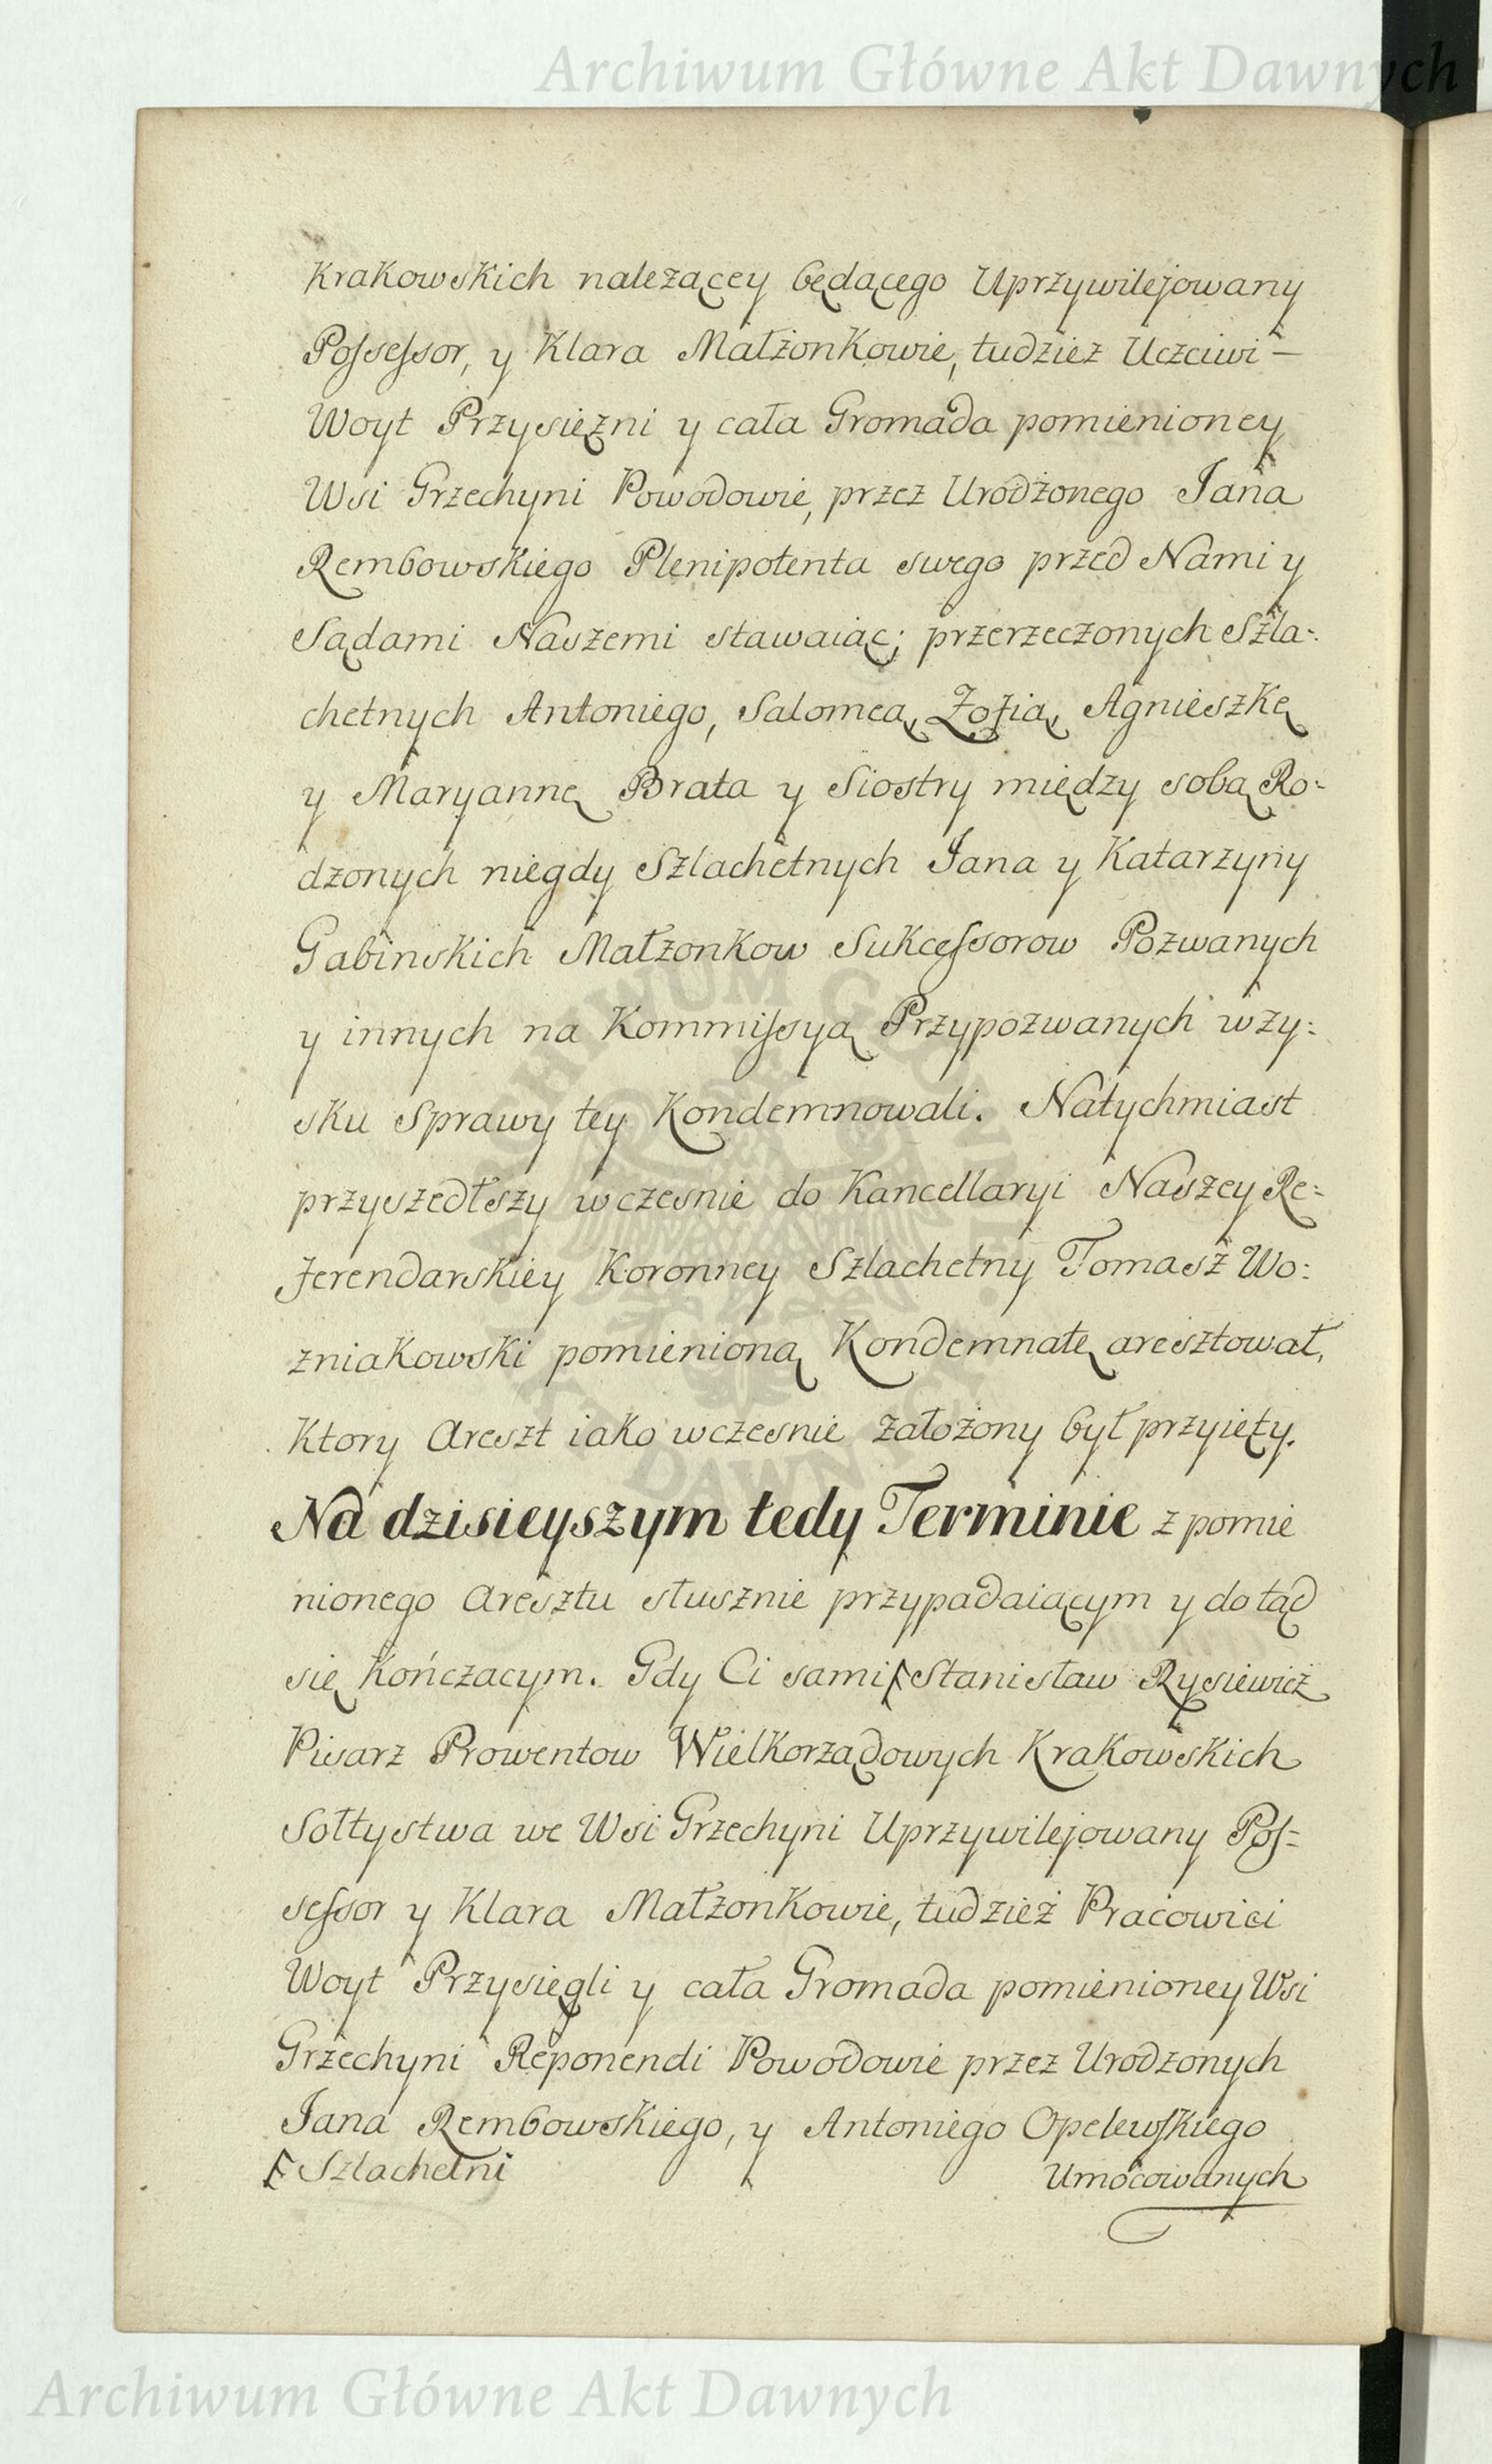 Archiwum Główne Akt Dawnych
Krakowskich nalezącey będącego Uprzywilejowany
Possessor, y Klara Małżonkowie, tudzież Uczciwi —
Woyt Przysiężni y cała Gromada pomienioney
Wsi Grzechyni Powodowie, przez Urodzonego Jana
Rembowskiego Plenipotenta swego przed Nami y
Sądami Naszemi stawaiąc; przerzeczonych Szla-
chetnych Antoniego, Salomeą, Zofią, Agnieszkę
y Maryannę Brata y Siostry między sobą Ro-
dzonych niegdy Szlachetnych Jana y Katarzyny
Gabinskich Małzonkow Sukcessorow Pozwanych
y innych na Kommissyą Przypozwanych wzy:
sku Sprawy tey Kondemnowali. Natychmiast
przyszedłszy wczesnie do Kancellaryi Naszey Re:
ferendarskiey Koronney Szlachetny Tomasz Wo:
zniakowski pomienioną Kondemnatę aresztował,
Ktory Areszt iako wczesnie założony był przyięty.
Na dzisieyszym tedy Terminie z pomie
nionego Aresztu słusznie przypadaiącym y do tąd
się kończacym. Gdy Ci sami Ꞙ Stanisław Rysiewicz
Pisarz Prowentow Wielkorządowych Krakowskich
Sołtystwa we Wsi Grzechyni Uprzywilejowany Pos-
sessor y Klara Małżonkowie, tudzież Pracowici
Woyt Przysięgli y cała Gromada pomienioney Wsi
Grzechyni Reponendi Powodowie przez Urodzonych
Jana Rembowskiego, y Antoniego Opelewskiego
Ꞙ Szlachetni
Umocowanych
Archiwum Główne Akt Dawnych